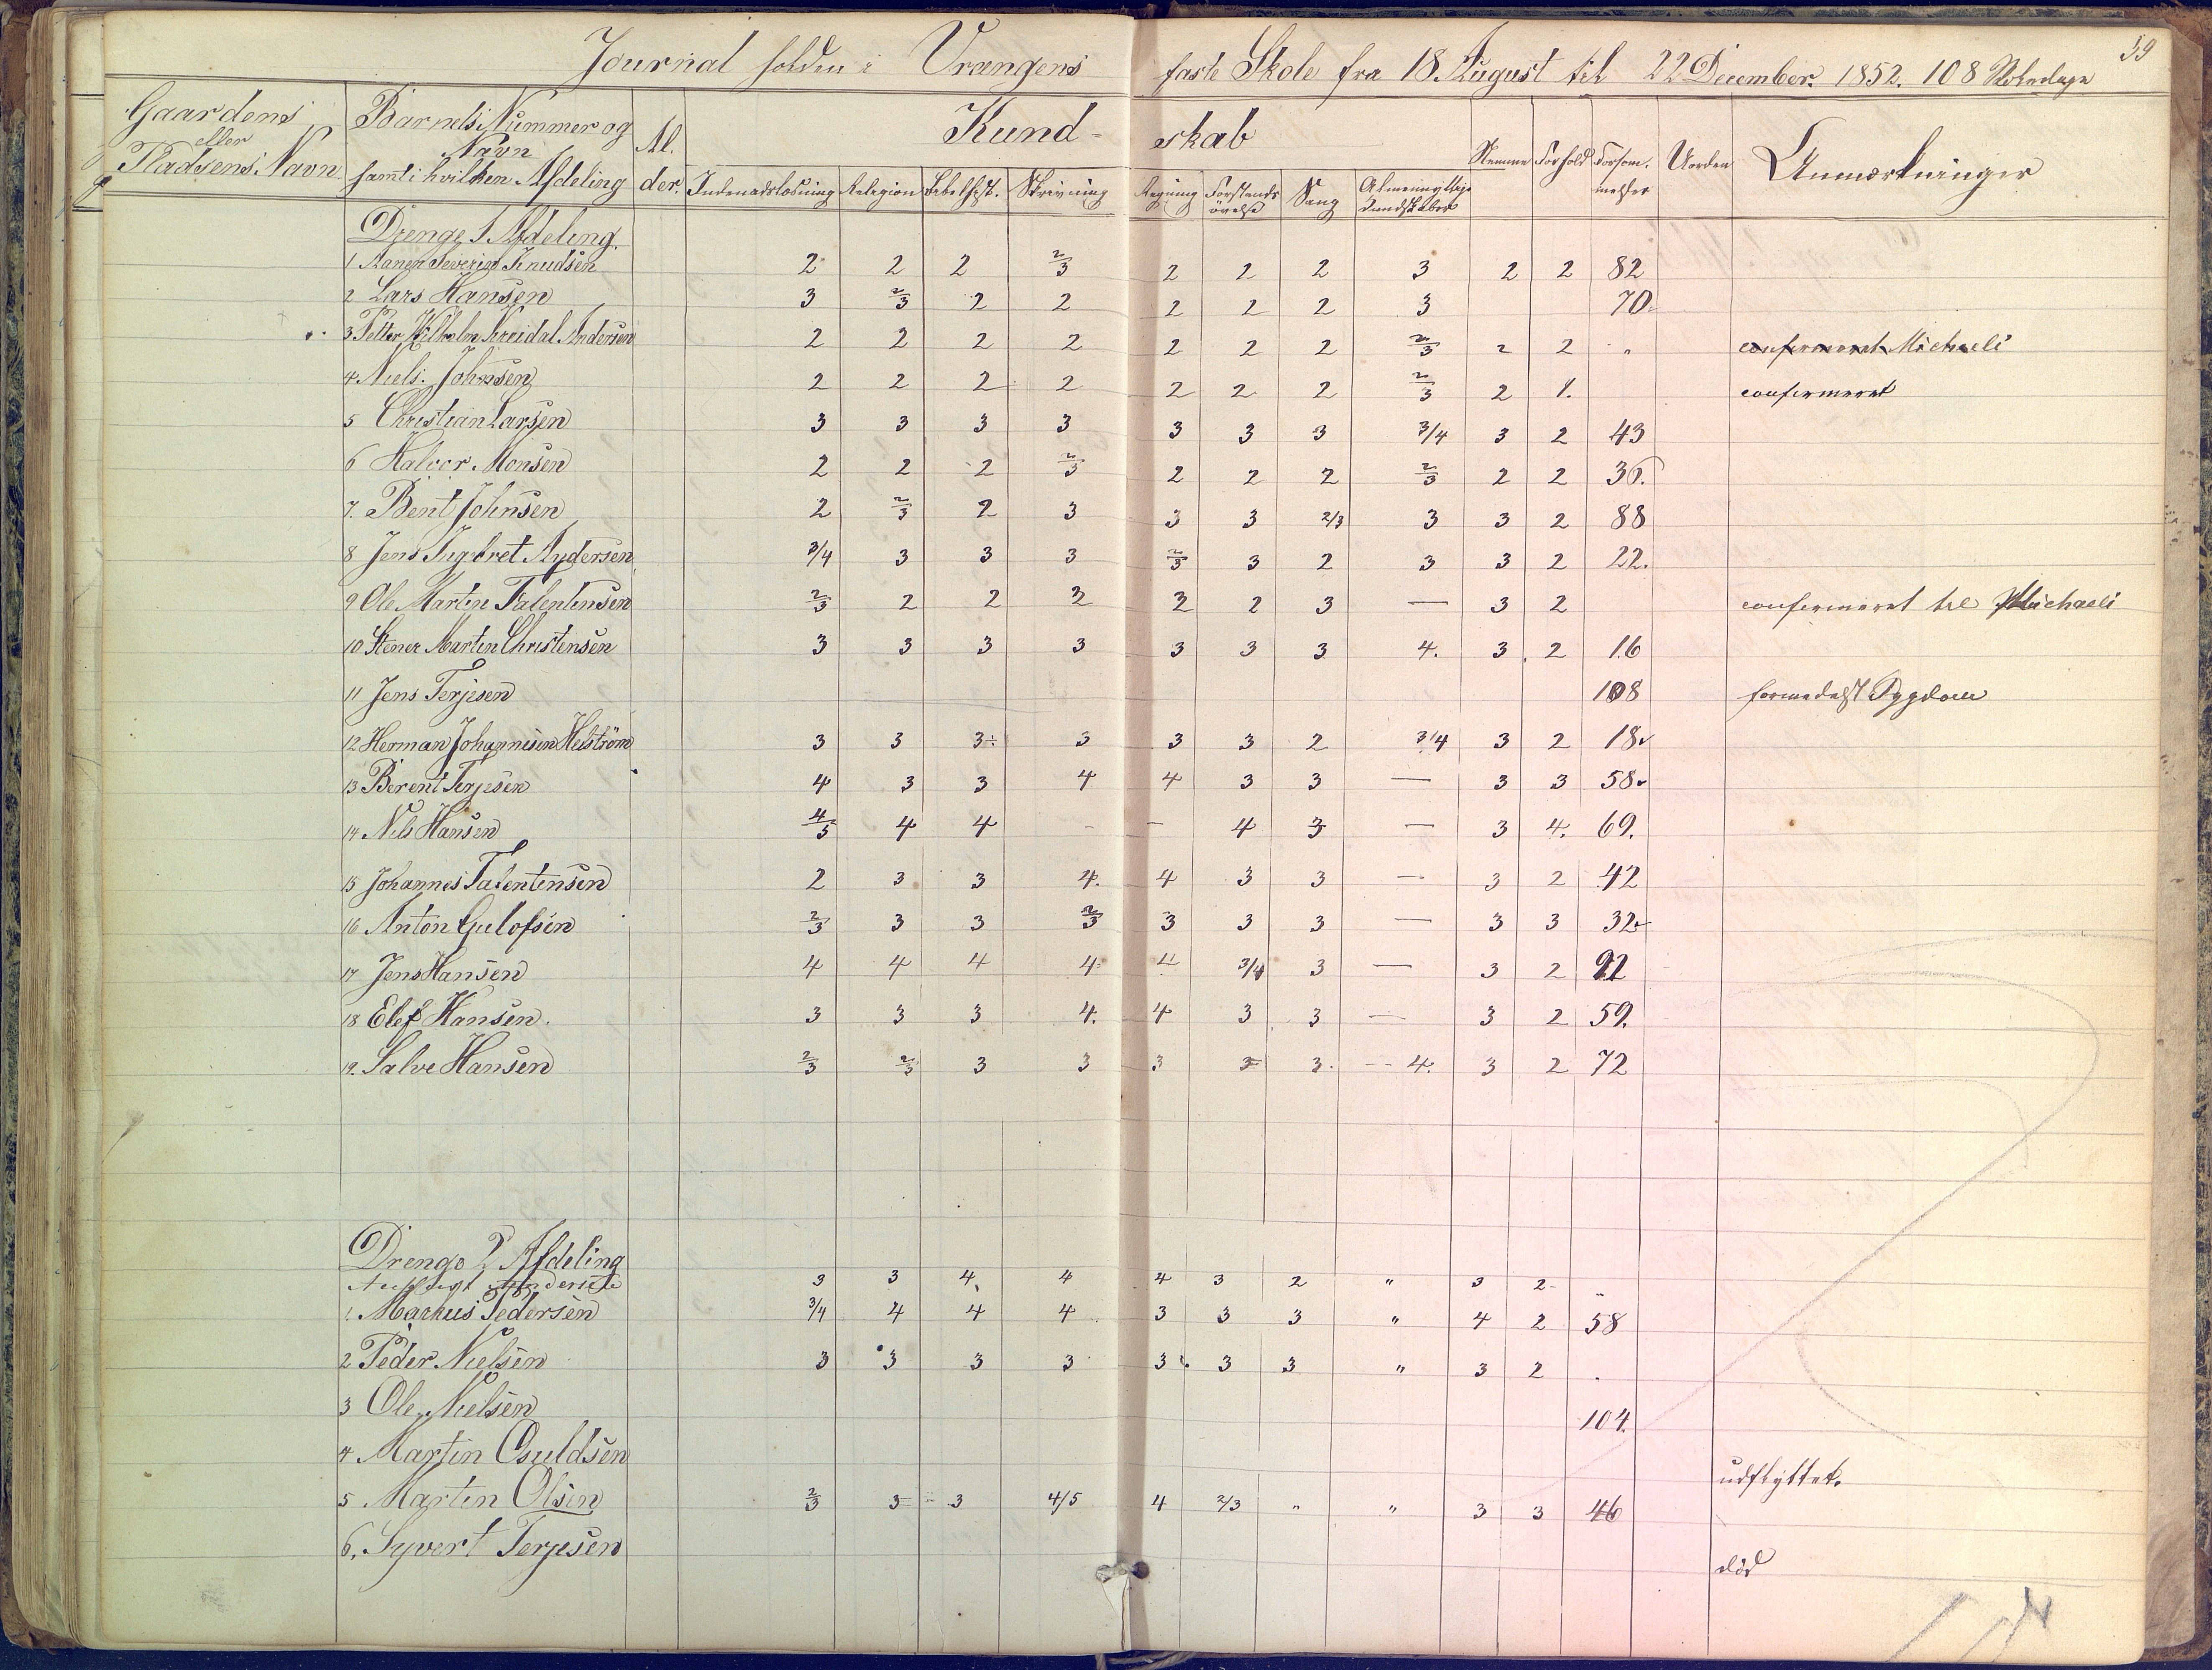 59
Journal holden i Vrangens faste Skole fra 18. August til 22 December. 1852. 108 Skoledage
Gaardens eller Pladsens Navn. | Barnets Nummer og Navn samt i hvilken Afdeling | Al. der. | Kund- skab
Indenadslæsning | Religion | Bibelhist. | Skrivning | Regning | Forstands øvelse | Sang | Almeennyttige Kundskaber | Nemme | Forhold | Forsøm. melser | Uorden | Anmærkninger
Drenge 1 Afdeling.
1 Severin Knudsen 2 2 2 2/3 2 2 2 3 2 2 82
2 Lars Hansen 3 2/3 2 2 2 2 2 3 70
3 Petter Wilhelm Andersen 2 2 2 2 2 2 2 2/3 2 2 " confermeret Michaeli
4 Niels Johnsen 2 2 2 2 2 2 2 2/3 2 1. confermeret
5 Christian Larsen 3 3 3 3 3 3 3 3/4 3 2 43
6 Halvor Monsen 2 2 2 2/3 2 2 2 2/3 2 2 36.
7. Bent Johnsen 2 2/3 2 3 3 3 2/3 3 3 2 88
8 Jens Ingebret Andersen 3/4 3 3 3 2/3 3 2 3 3 2 22.
9 Ole Martin Falentinsen 2/3 2 2 2 2 2 3 — 3 2 confermeret til Michaeli
10 Stener Martin Christensen 3 3 3 3 3 3 3 4. 3 2 16
11 Jens Terjesen 108 formedelst Sygdom
12 Herman Johannesen Helström 3 3 3÷ 3 3 3 2 3/4 3 2 18
13 Berent Terjesen 4 3 3 4 4 3 3 — 3 3 58
14 Nils Hansen 4/5 4 4 - — 4 3 — 3 4. 69.
15 Johannes Falentensen 2 3 3 4. 4 3 3 — 3 2 42
16 Anton Gulofsen 2/3 3 3 2/3 3 3 3 — 3 3 32
17 Jens Hansen 4 4 4 4 4 3/4 3 — 3 2 92
18 Elef Hansen. 3 3 3 4. 4 3 3 — 3 2 59.
19. Salve Hansen 2/3 2/3 3 3 3 3 3. 4. 3 2 72
Drenge 2 Afdeling
Andersen 3 3 4 4 4 3 2 " 3 2 "
1. Markus Pedersen 3/4 4 4 4 3 3 3 " 4 2 58
2 Peder Nielsen 3 3 3 3 3 3 3 " 3 2 .
3 Ole Nielsen 104.
4 Martin Osuldsen udflyttet.
5 Martin Olsen 2/3 3 3 4/5 4 2/3 " " 3 3 46
6. Syvert Terjesen död